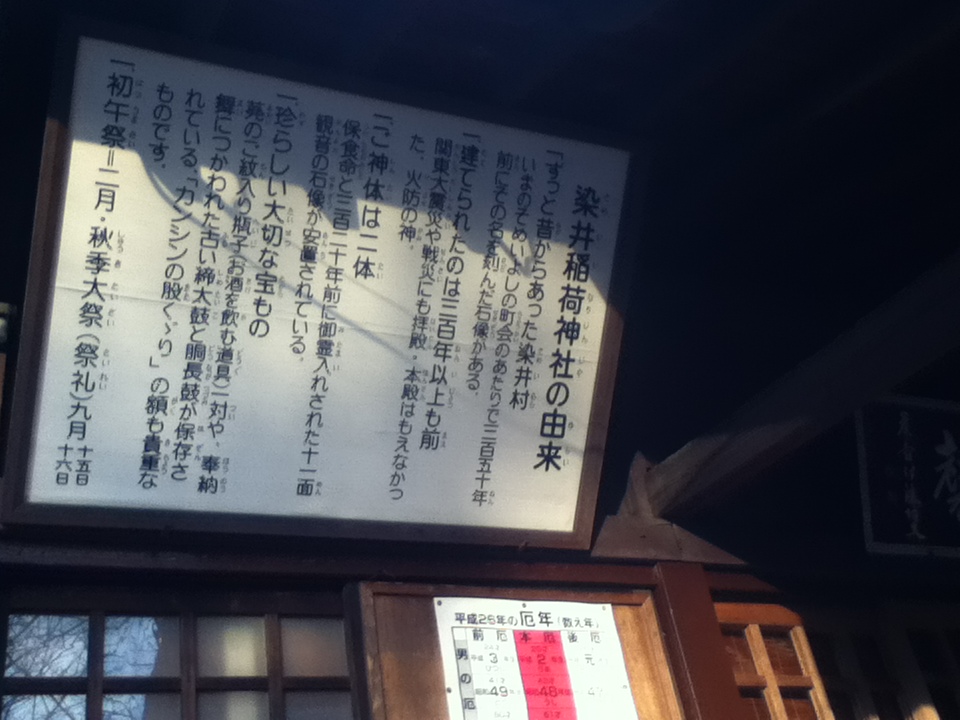 染井稲荷神社の由来
一、ずっと昔からあった染井村
いまのそめいよしの町会のあたりで三百五十年
前にその名を刻んだ石像がある。
一、建てられたのは三百年以上も前
関東大震災や戦災にも拝殿・本殿はもえなかっ
た、火防の神。
一、ご神体は二体
保食命と三百二十年前に御霊入れされた十一面
観音の石像が安置されている。
一、珍らしい大切な宝もの
葵のご紋入り瓶子(お酒を飲む道具)一対や、奉納
舞につかわれた古い締太鼓と胴長鼓が保存さ
れている。「カンシンの股くゞり」の額も貴重な
ものです。
一、初午祭=二月・秋季大祭(祭礼)九月 十五日
十六日
平成26年の厄年(数え年)
前厄 本厄 後厄
男の厄
平成 3年 平成 2年 元
昭和 49年 昭和 48年